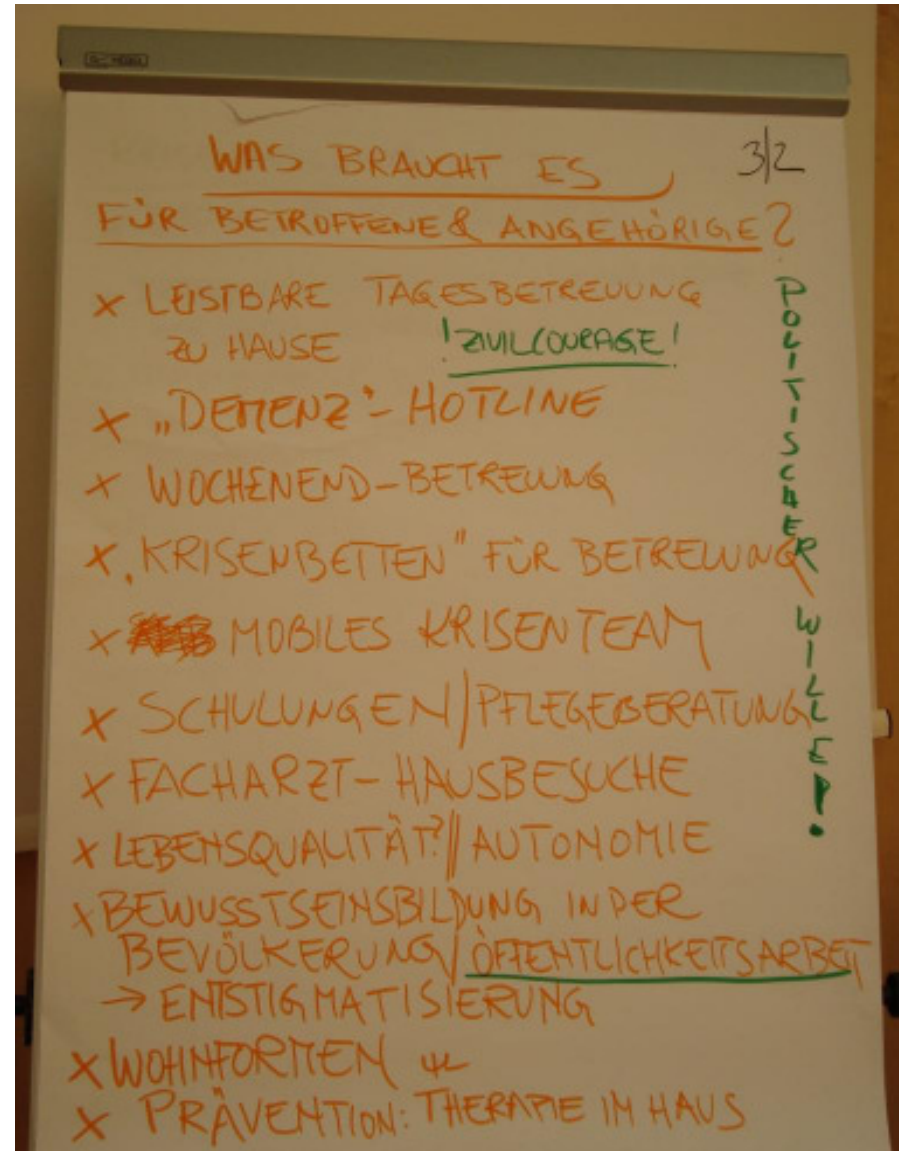 3/2
WAS BRAUCHT ES
FÜR BETROFFENE & ANGEHÖRIGE?
x LEISTBARE TAGESBETREUUNG
ZU HAUSE !ZIVILCOURAGE!
x „DEMENZ“-HOTLINE
x WOCHENEND-BETREUUNG
x „KRISENBETTEN“ FÜR BETREUUNG
x MOBILES KRISENTEAM
x SCHULUNGEN/PFLEGEBERATUNG
x FACHARZT-HAUSBESUCHE
x LEBENSQUALITÄT?//AUTONOMIE
x BEWUSSTSEINSBILDUNG IN DER
BEVÖLKERUNG/ÖFFENTLICHKEITSARBEIT
→ ENTSTIGMATISIERUNG
x WOHNFORMEN
x PRÄVENTION: THERAPIE IM HAUS
POLITISCHER WILLE!